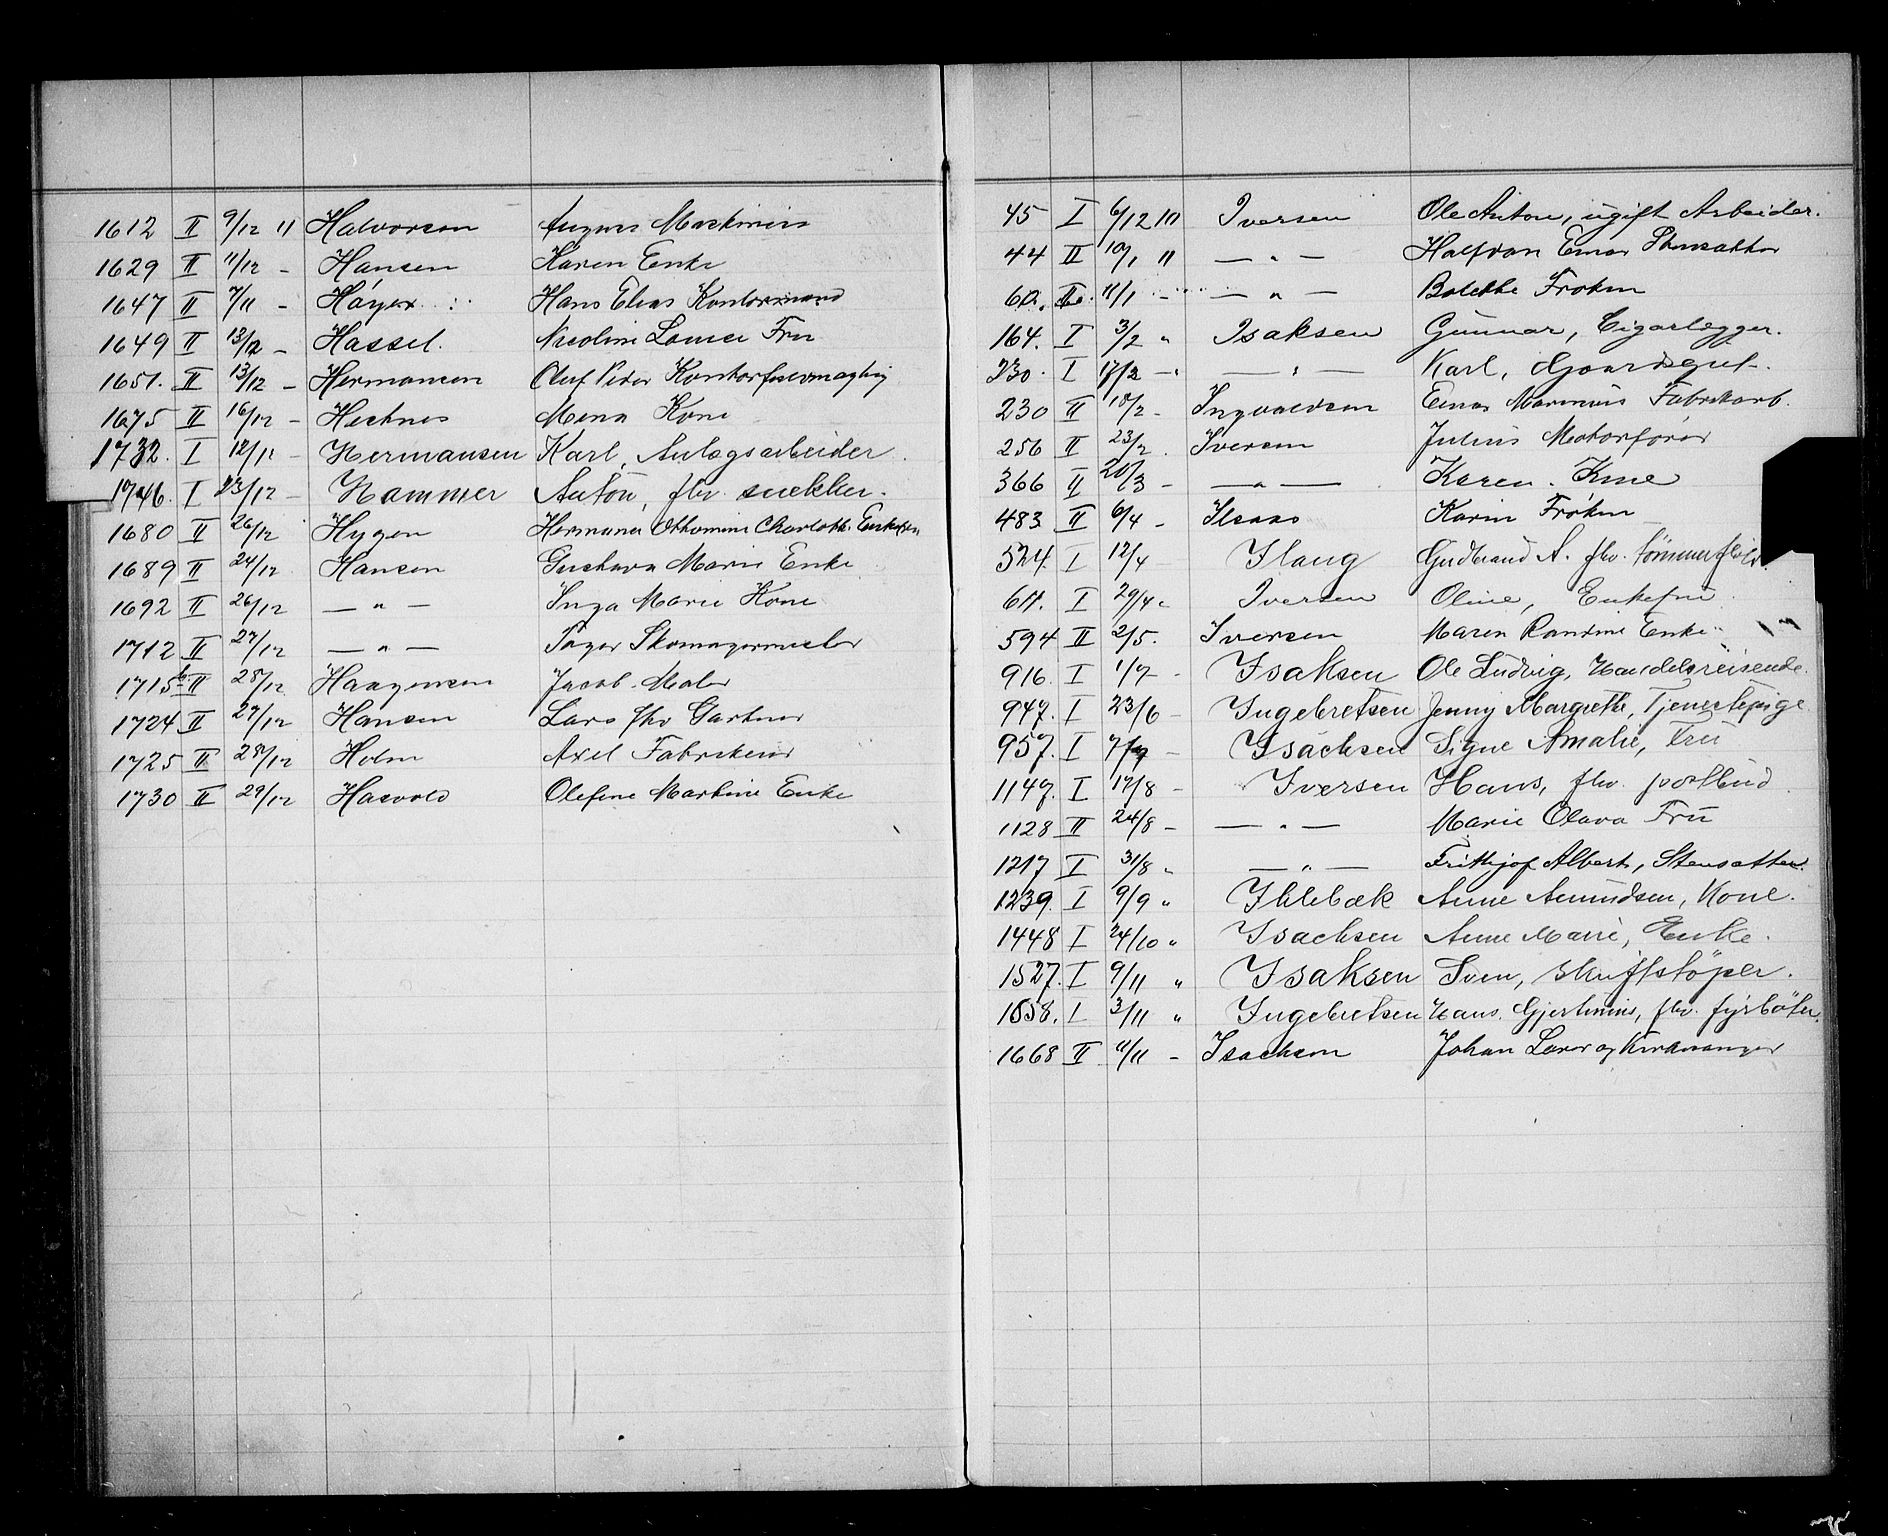 1612 II 9/12 11 Halvorsen August Maskinist
1629 II 11/12 - Hansen Karen Enke
1647 II 7/11 - Høyer Hans Elias Kontormand
1649 II 13/12 - Hassel. Nicoline Louise Fru
1651. II 13/12 - Hermansen Oluf Peder Kontorfuldmægtig
1675 II 16/12 - Hecknes Mena Kone
1732. I 12/12 - Hermansen Karl, Anlægsarbeider.
1746. I 23/12 - Hammer Anton, fhv. snekker.
1680 II 26/12 Hygen Hermana Othomine Charlotte Enkefru
1689 II 24/12 Hansen Gustava Marie Enke
1692 II 26/12 — " — Inga Marie Kone
1712 II 27/12 — " — Skomagermester
1715b II 28/12 Haagensen Jacob Maler
1724 II 27/12 Hansen Lars fhv Gartner
1725 II 28/12 Holm Axel Fabrikeier
1730 II 29/12 Hasvold Olefine Martine Enke
45 I 6/12 10 Iversen Ole Anton, ugift Arbeider.
44 II 10/1 11 — " — Halfdan Einar Stensætter
60. II 11/1 - — " — Bolette Frøken
164. I 3/2 " Isaksen Gunnar, Cigarlægger.
230. I 17/2 — " — " — Karl, Gaardsgut.
230 II 18/2 - Ingvaldsen Einar Marinius Fabrikarb.
256 II 23/2 . Iversen Julius Motorfører
366 II 20/3 - — " — Karen. Kone
483 II 6/4 - Ilsaas Karin Frøken
524 I 12/4 Ilaug Gudbrand A. fhv. tømmerfløder.
611. I 29/4 " Iversen Oline, Enkefru
594 II 2/5. Iversen Maren Randine Enke
916. I 1/7 - Isaksen Ole Ludvig, Handelsreisende.
947. I 23/6 - Ingebretsen Jenny Margrethe, Tjenestepige
957. I 7/7 - Isachsen Signe Amalie, Fru
1147. I 17/8 - Iversen Hans, fhv. postbud.
1128 II 24/8 - — " — Marie Olava Fru
1217 I 31/8 " — " — Frithjof Albert, Stensætter.
1239. I 9/9 " Ihlebæk Anne Amundsen, Kone.
1448 I 24/10 " Isachsen Anne Marie, Enke.
1527. I 9/11 " Isaksen Sven, skriftstøper.
1658. I 3/11 " Ingebretsen Hans Gjertinius, fhv. fyrbøter.
1668 II 11/11 - Isachsen Johan Lærer og Kirkesanger